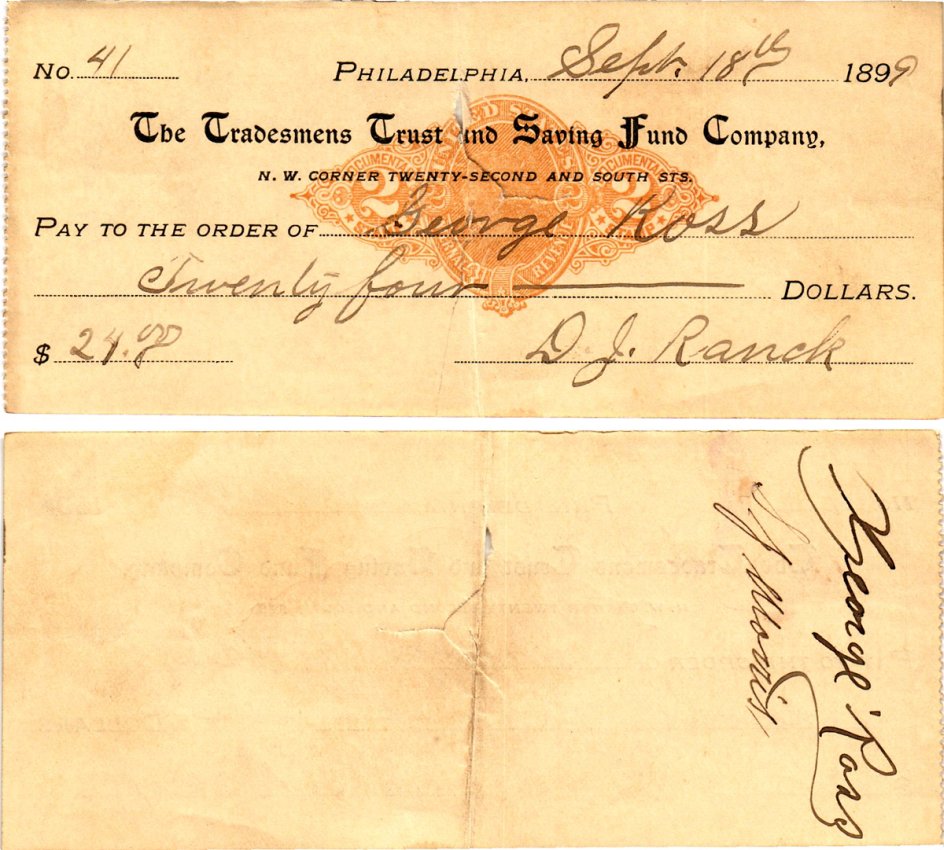 No. 41 PHILADELPHIA, Sept. 18th 1899
The Tradesmens Trust and Saving Fund Company,
N. W. CORNER TWENTY-SECOND AND SOUTH STS.
DOCUMENTA 2 UNITED STATES DOCUMENTA 2
PAY TO THE ORDER OF George Ross
Twenty four DOLLARS.
$ 24.00 D. J. Ranck
George Ross
Morris